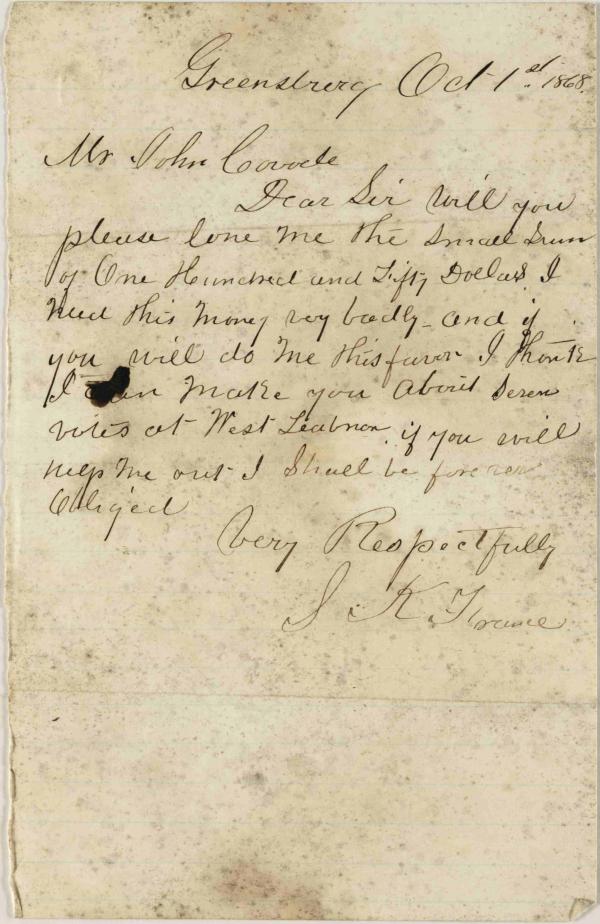 Greensburg Oct 1st 1868.
Mr John Covode
Dear Sir will you
please lone me the Small Sum
of One Hundred and Fifty Dollars I
need this money very badly - and if
you will do me this favor I think
I can make you about seven
votes at West Leabnon. if you will
help me out I Shall be forever
Obliged
Very Respectfully
K.